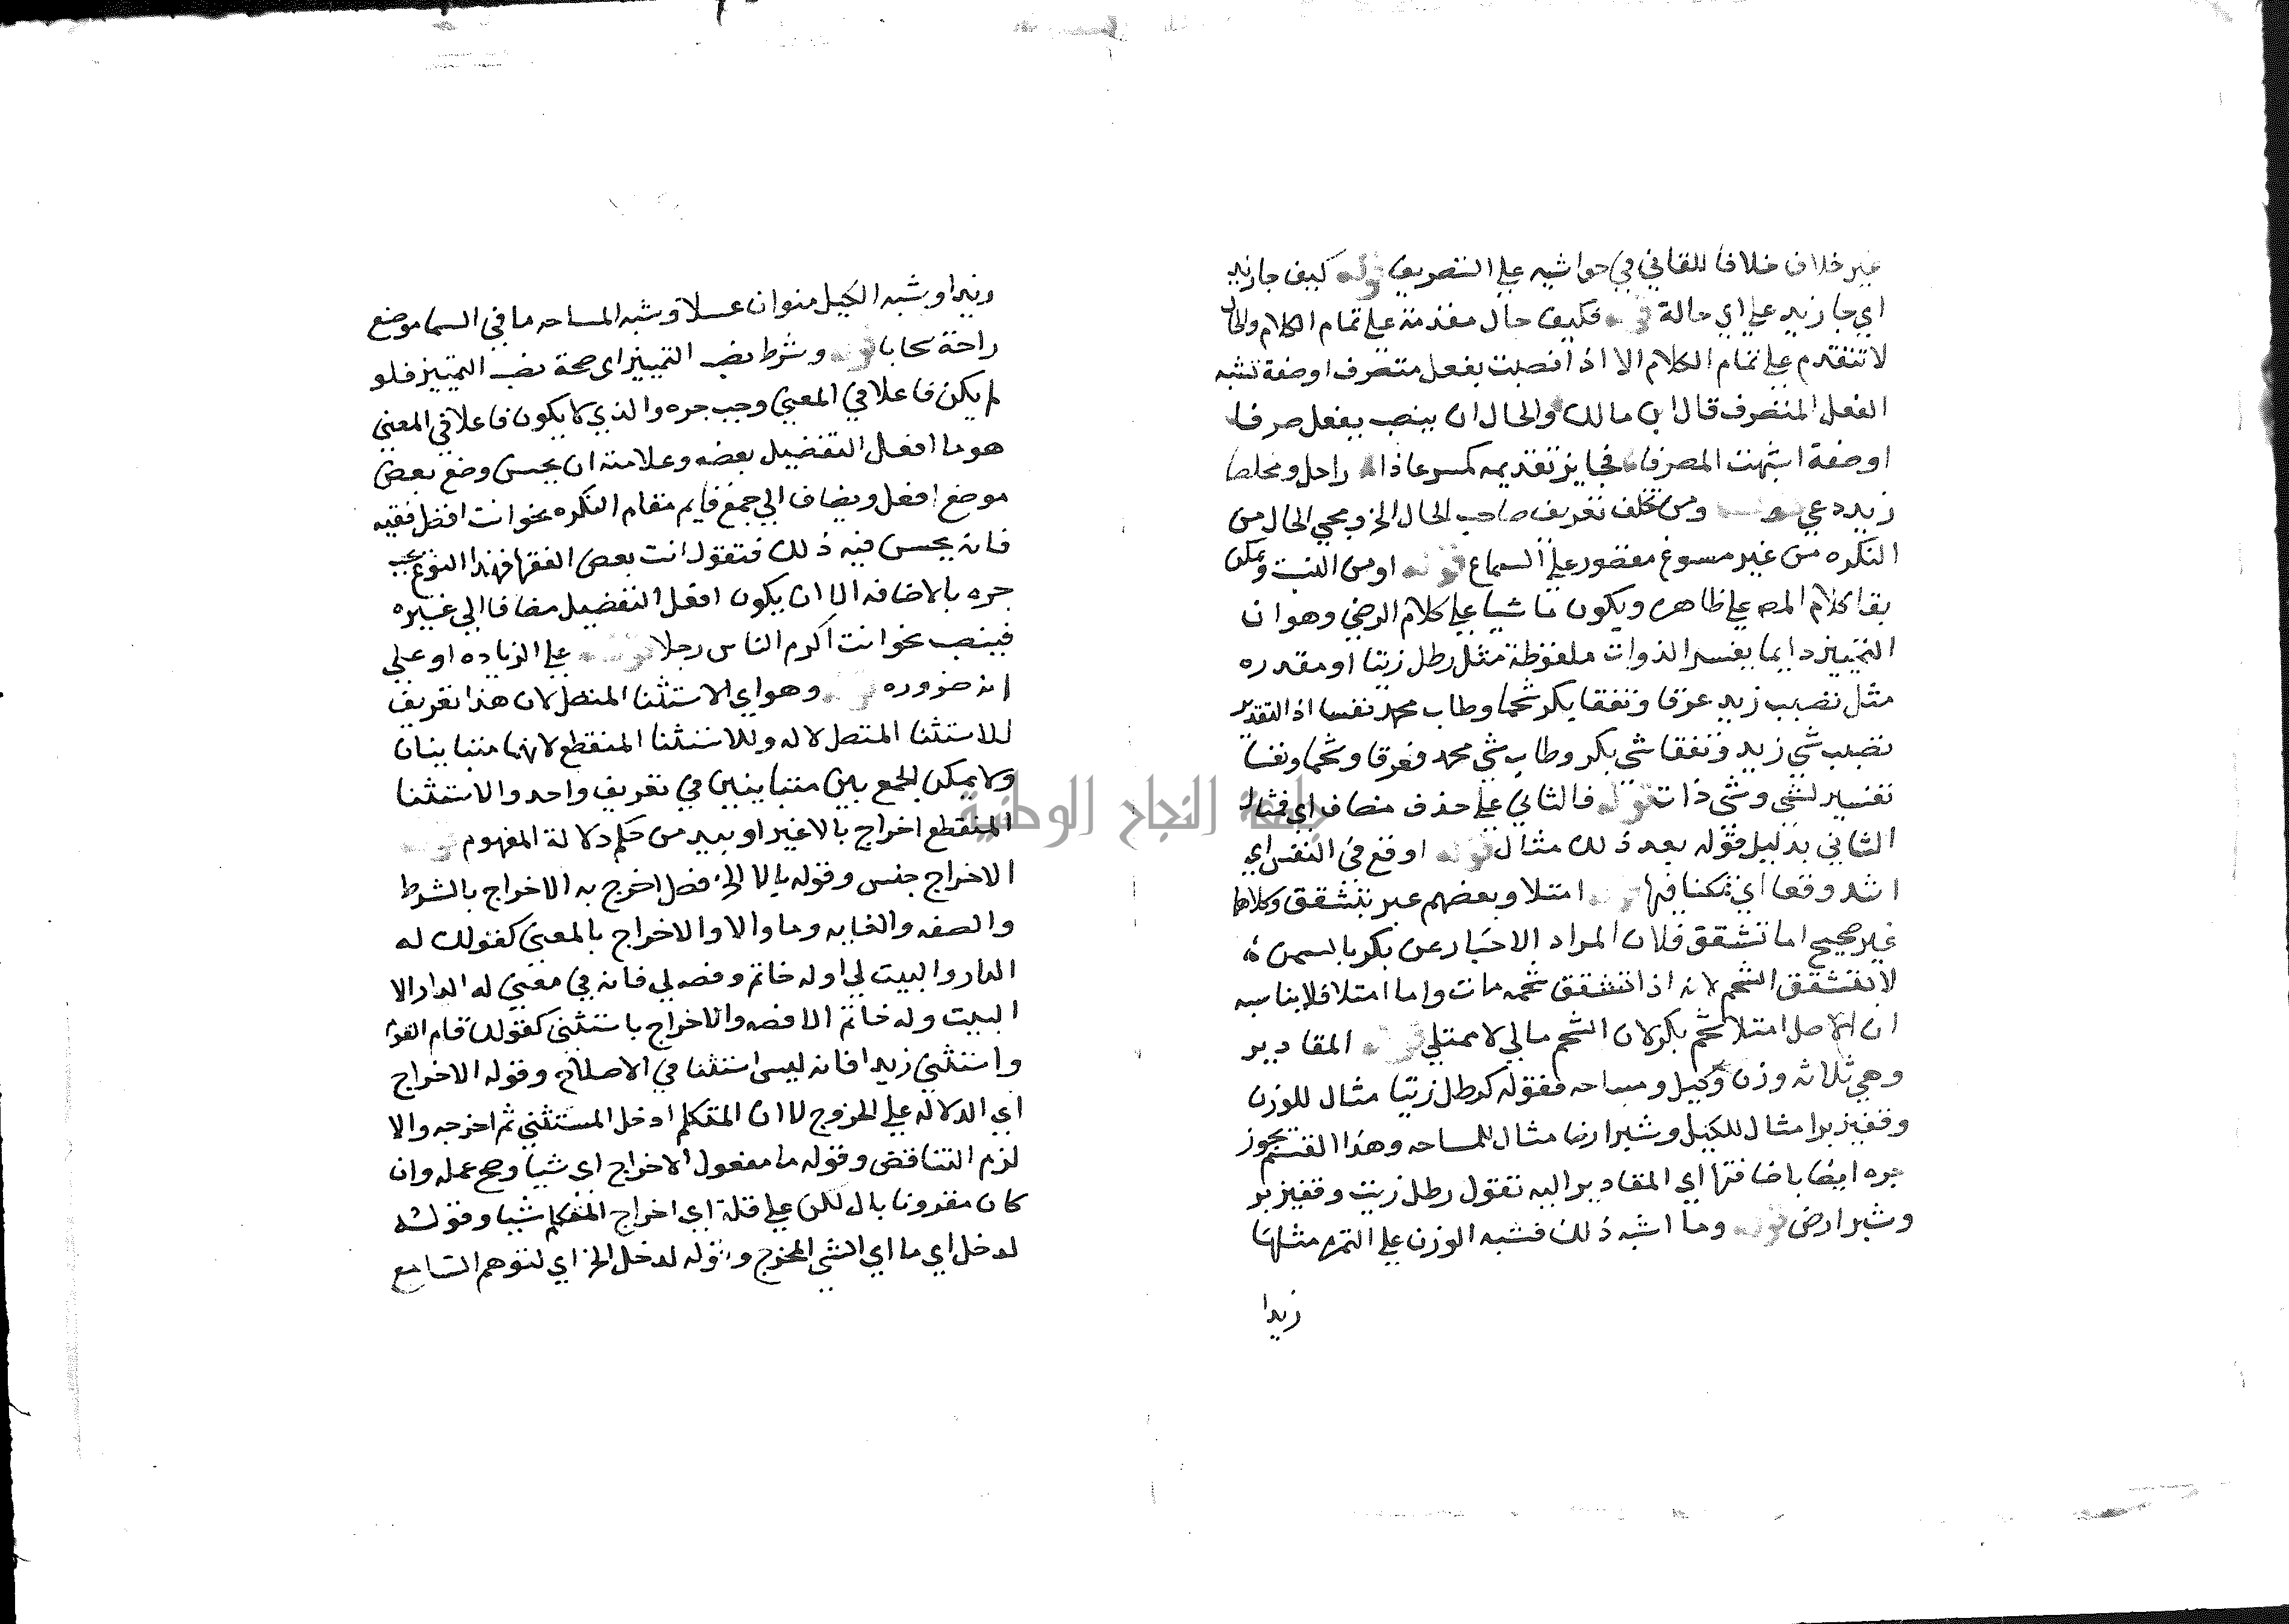 غير خلاف خلافا للقاني في حواشيه علي التصريف قوله كيف جا زيد
اي جا زيد علي اي حالة قوله فكيف حال مقدمة علي تمام الكلام والحال
لا تتقدم علي تمام الكلام الا اذا نصبت بفعل متصرف او صفة تشبه
الفعل المتصرف قال ابن مالك والحال ان ينصب بفعل صرفا
او صفة اشبهت المصرفا فجايز تقديمه كمسرعا ذا راحل ومخلصا
زيد دعي قوله ومن تخلف تعريف صاحب الحال الخ ومجي الحال من
النكره من غير مسوغ مقصور علي السماع قوله او من النسب ويمكن
بقا كلام المص علي ظاهره ويكون ماشيا علي كلام الرضي وهو ان
التمييز دايما يفسر الذوات ملفوظة مثل رطل زيتا او مقدره
مثل تصبب زيد عرقا وتفقا بكر شحما وطاب محمد نفسا اذ التقدير
تصبب شي زيد وتفقا شي بكر وطاب شي محمد فعرقا وشحما ونفسا
تفسير لشي وشي ذات قوله فالثاني علي حذف مضاف اي فمثال
الثاني بدليل قوله بعد ذلك مثال قوله اوقع في النفس اي
اشد وقعا اي تمكنا فيها قوله امتلا وبعضهم عبر بتشقق وكلاهما
غير صحيح اما تشقق فلان المراد الاخبار عن بكر بالسمن
لا بتشقق الشحم لانه اذا تشقق شحمه مات واما امتلا فلا يناسبه
ان الاصل امتلا شحم بكر لان الشحم مالي لا ممتلي قوله المقادير
وهي ثلاثه وزن وكيل ومساحه فقوله كرطل زيتا مثال للوزن
وقفيز برا مثال للكيل وشبر ارضا مثال للمساحه وهذا القسم يجوز
جره ايضا باضافتها اي المقادير اليه تقول رطل زيت وقفيز بر
وشبر ارض قوله وما اشبه ذلك فشبه الوزن علي التمره مثلها
زبدا
زبدا وشبه الكيل منوان عسلا وشبه المساحه ما في السما موضع
راحة سحابا قوله وشرط نصب التمييز اي صحة نصب التمييز فلو
لم يكن فاعلا في المعني وجب جره والذي لا يكون فاعلا في المعني
هو ما افعل التفضيل بعضه وعلامته ان يحسن وضع بعض
موضع افعل ويضاف الي جمع قايم مقام النكره نحو انت افضل فقيه
فانه يحسن فيه ذلك فتقول انت بعض الفقها فهذا النوع يجب
جره بالاضافه الا ان يكون افعل التفضيل مضافا الي غيره
فينصب نحو انت اكرم الناس رجلا قوله علي الزياده او علي
انه ضروره قوله وهو اي الاستثنا المتصل لان هذا تعريف
للاستثنا المتصل لا له وللاستثنا المنقطع لانهما متباينان
ولا يمكن الجمع بين متباينين في تعريف واحد والاستثنا
المنقطع اخراج بالا غير او بيد من حكم دلالة المفهوم قوله
الاخراج جنس وقوله بالا الخ فصل اخرج به الاخراج بالشرط
والصفه والغايه وما والا والاخراج بالمعني كقولك له
الدار والبيت لي او له خاتم وفصه لي فانه في معني له الدار الا
البيت وله خاتم الا فصه والاخراج باستثني كقولك قام القوم
واستثني زيدا فانه ليس استثنا في الاصطلاح وقوله الاخراج
اي الدلاله علي الخروج لا ان المتكلم ادخل المستثني ثم اخرجه والا
لزم التناقض وقوله ما مفعول الاخراج اي شيا وصح عمله وان
كان مقرونا بال لكن علي قلة اي اخراج المتكلم شيا وقوله
لدخل اي ما اي الشي المخرج وقوله لدخل الخ اي لتوهم السامع
جامعة النجاح الوطنية